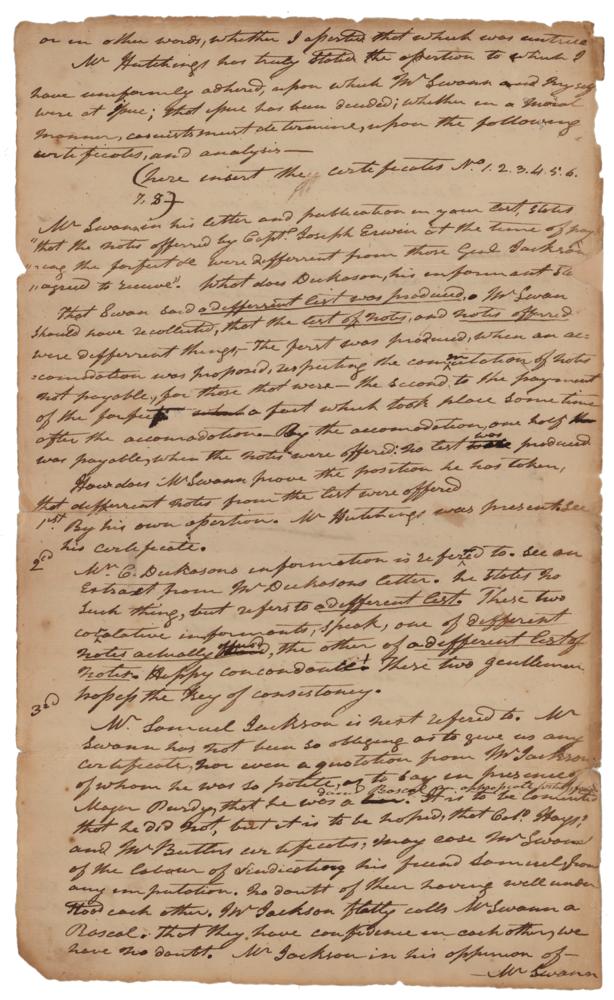 or in other words, whether I asserted that which was untrue
Mr Hutchings has truly stated the assertion to which I
have uniformly adhered, upon which Mr Swann and myself
were at issue; that issue has been decided; whether in a moral
manner, casuists must determine, upon the following
certificates, and analysis —
(here insert the certificates No. 1. 2. 3. 4. 5. 6.
7. 8)
Mr Swann in his letter and publication in your last, states
"that the notes offerred by Capt. Joseph Erwin at the time of pay
"-ing the forfeit &c were defferrent from those Genl Jackson
"agreed to receive". What does Dickason, his informant &c
That Swan said a defferrent list was produced. Mr Swan
should have recollected, that the list of notes, and notes offerred
were defferrent things— The first was produced, when an ac-
-comodation was proposed, respecting the commutation of notes
not payable, for those that were — the second, to the payment
of the forfeit a fact which took place some time
after the accomodation. By the accomodation, one half
was payable, when the notes were offered: no list was produced
How does Mr Swann prove the position he has taken,
that defferrent notes from the list were offerred
1st By his own assertion. Mr Hutchings was present, see
his certificate.
2d Mr C. Dickasons information is referred to. See an
Extract from Mr Dickasons letter. he states no
such thing, but refers to a defferent list. These two
corelative informants, speak, one of defferent
notes actually , the other of a defferent list of
notes. Happy concordance! These two gentlemen
possess the key of consistency.
3d Mr Samuel Jackson is next refered to. Mr
Swann has not been so obliging as to give us any
certificate, nor even a quotation from Mr Jackson
of whom he was so polite, as to say in presence of
Major Purdy, that he was a damd Rascal . It is to be lamented
that he did not, but it is to be hoped, that Colo. Hays,
and Mr Butlers certificates, may ease Mr Swann
of the labour of vindicating his friend Samuel, from
any imputation. No doubt of their having well under
stood each other. Mr Jackson flatly calls Mr Swann a
Rascal. that they have confidence in each other, we
have no doubt. Mr Jackson in his oppinion of —
— Mr Swann